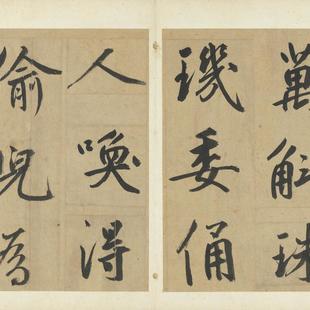 萬斛珠
璣委俑
人喚得
偷兒為